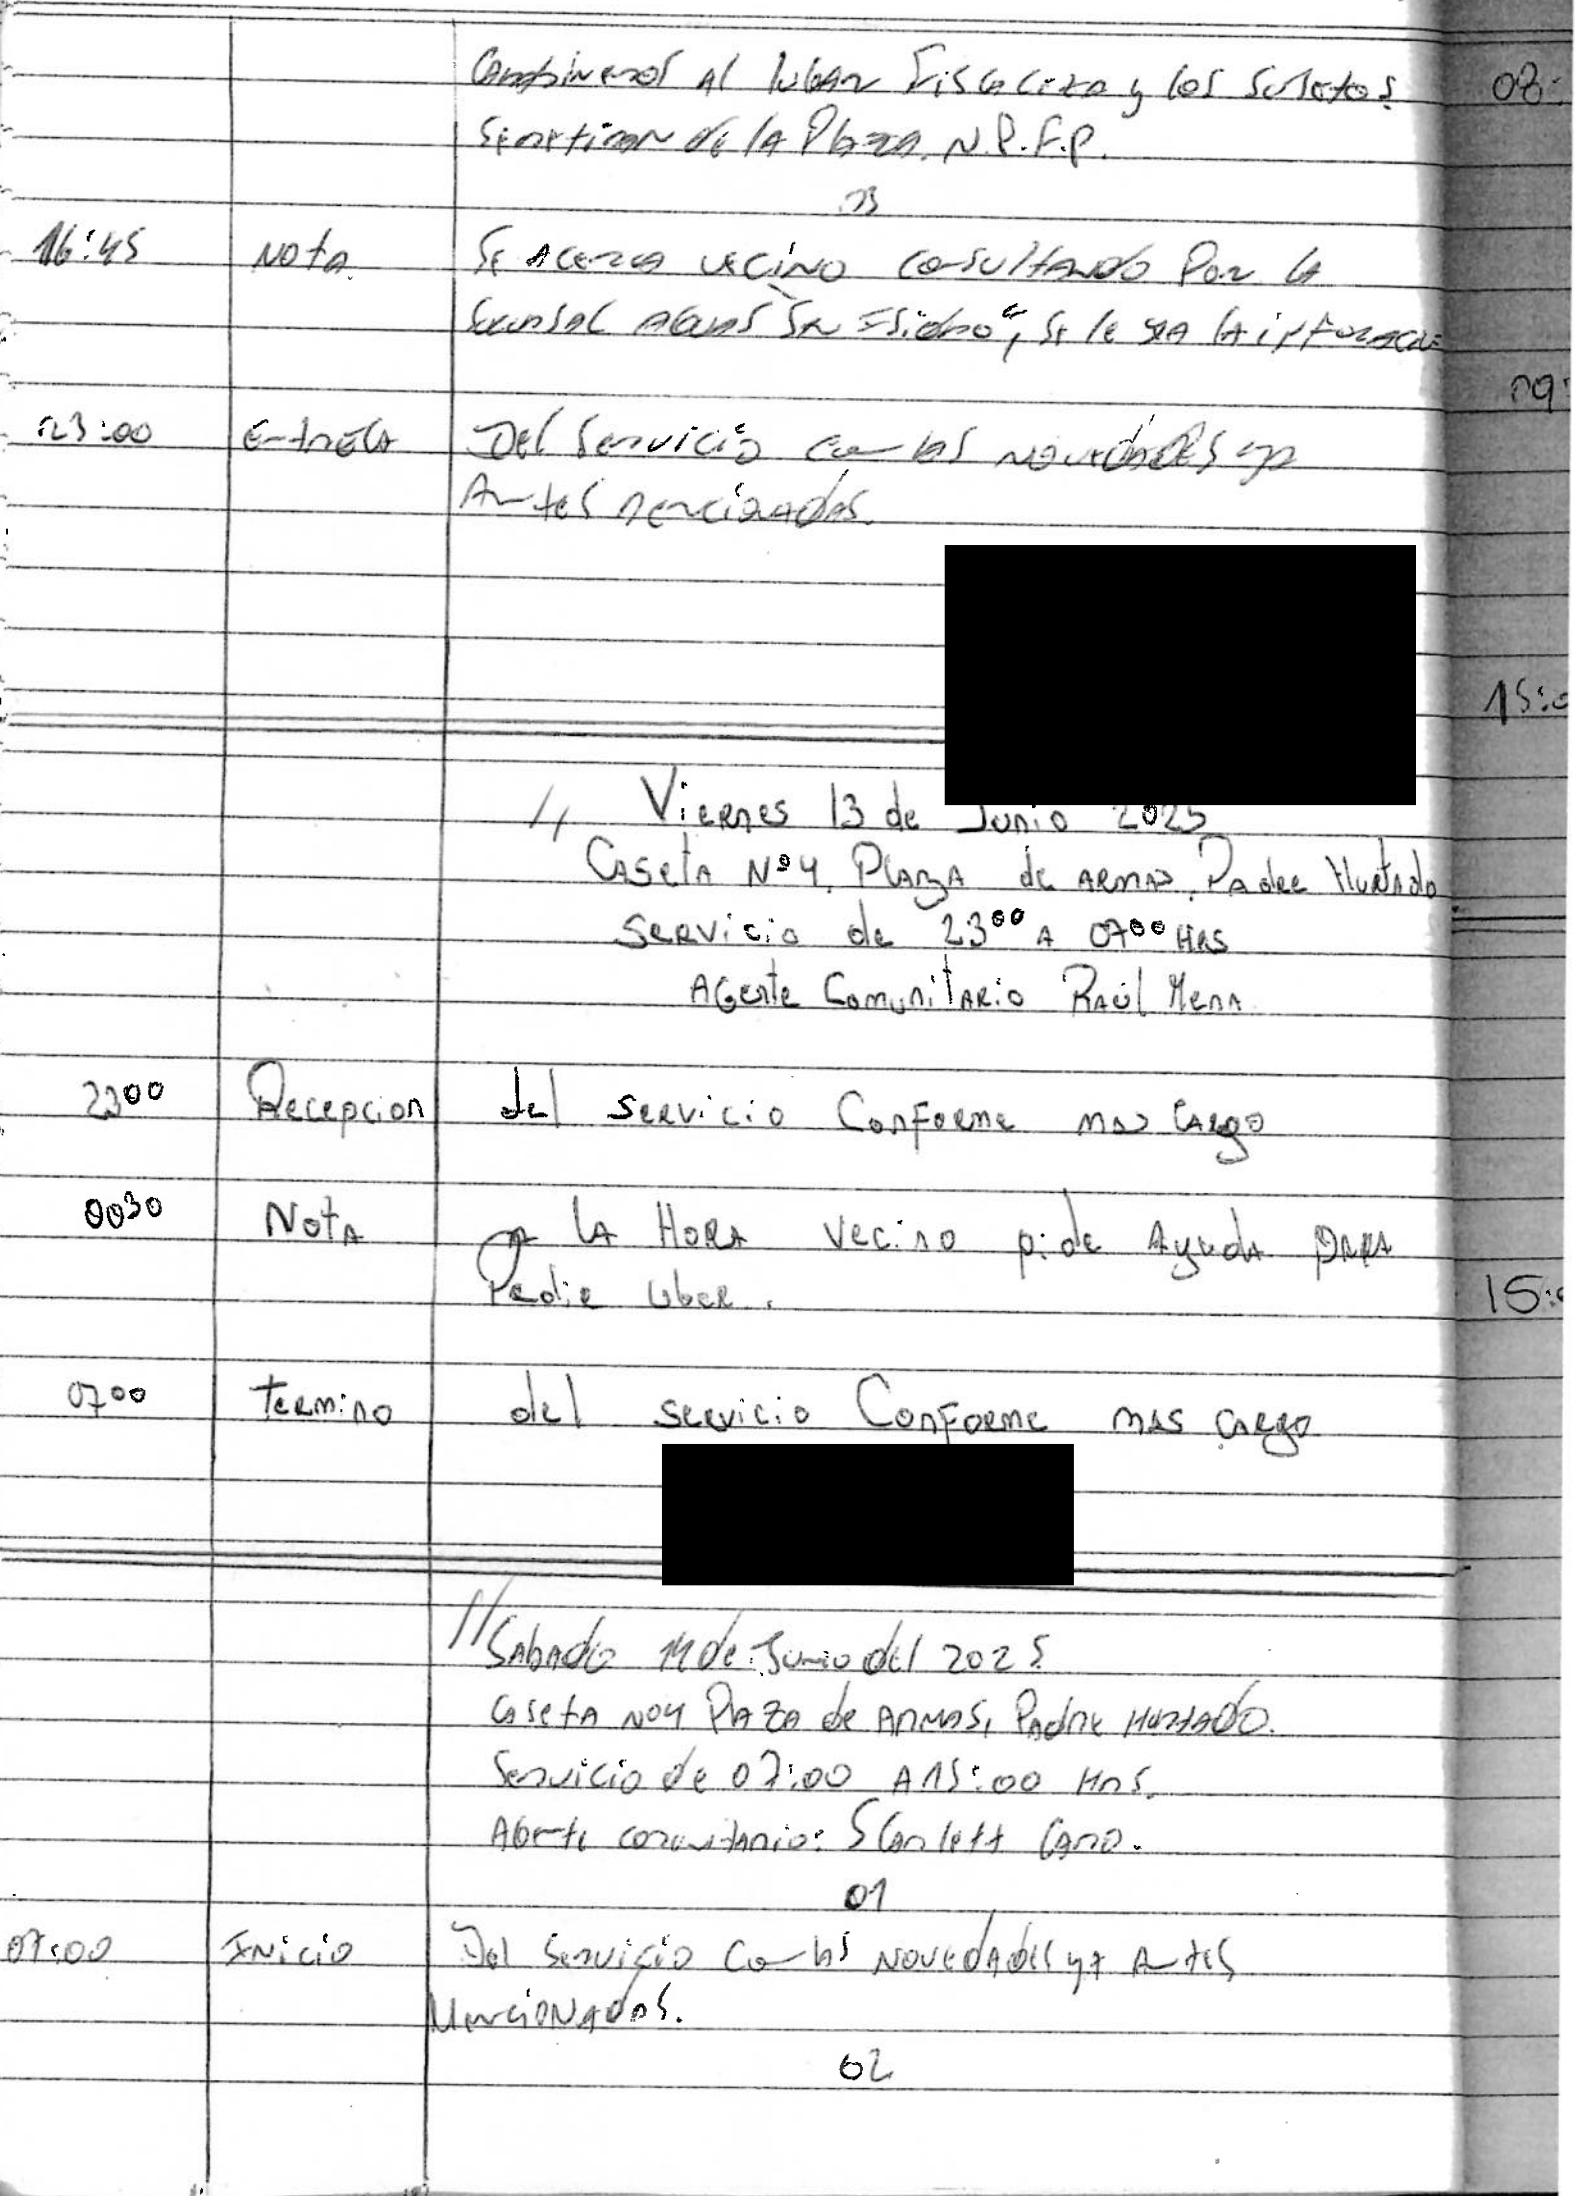 Carabineros al lugar Fiscaliza y los sujetos
se retiran de la Plaza. N.P.F.P.
03
16:45 Nota Se acerca vecino consultando por la
sucursal Aguas San Isidro", se le da la
23:00 Entrega Del servicio con las novedades ya
Antes mencionadas.
// Viernes 13 de Junio 2025
Caseta Nº4, Plaza de ARMAS, Padre Hurtado
Servicio de 23⁰⁰ A 07⁰⁰ HRS
Agente Comunitario Raúl Mena
23⁰⁰ Recepcion del servicio Conforme mas cargo
00³⁰ Nota a LA HORA vecino pide Ayuda para
Pedir Uber.
07⁰⁰ Termino del servicio Conforme mas cargo
// Sabado 14 de Junio del 2025
Caseta No4 Plaza de Armas, Padre Hurtado.
Servicio de 07:00 A 15:00 Hrs.
Agente comunitario: Scarlett Caro.
01
07:00 Inicio Del servicio con las novedades ya Antes
Mencionadas.
02
08:
09:
15:0
15: